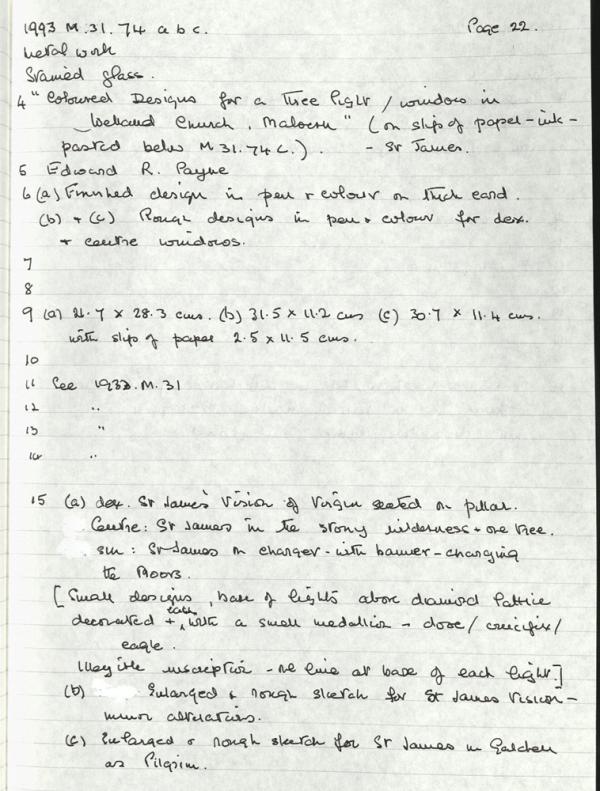 1993 M.31.74 a b c. Page 22.
Metal work
Stained glass.
4 "Coloured Designs for a three light / windows in
Welland Church, Malvern" (on slip of paper - ink -
pasted below M 31.74 C.). - St James.
5 Edward R. Payne
6 (a) Finished design in pen + colour on thick card.
(b) + (c) Rough designs in pen + colour for dex.
+ centre windows.
7
8
9 (a) 21.7 x 28.3 cms. (b) 31.5 x 11.2 cms (c) 30.7 x 11.4 cms.
with slip of paper 2.5 x 11.5 cms.
10
11 See 1933.M.31
12 "
13 "
14 "
15 (a) dex. St James's Vision of Virgin seated on pillar.
Centre: St James in the stony wilderness + one tree.
sin: St James on charger - with banner - charging
the Moors.
[Small designs, base of lights above diamond lattice
decorated + each with a small medallion - dove / crucifix /
eagle.
Illegible inscription - one line at base of each light.]
(b) Enlarged & rough sketch for St James Vision -
minor alterations.
(c) Enlarged & rough sketch for St James in
as Pilgrim.